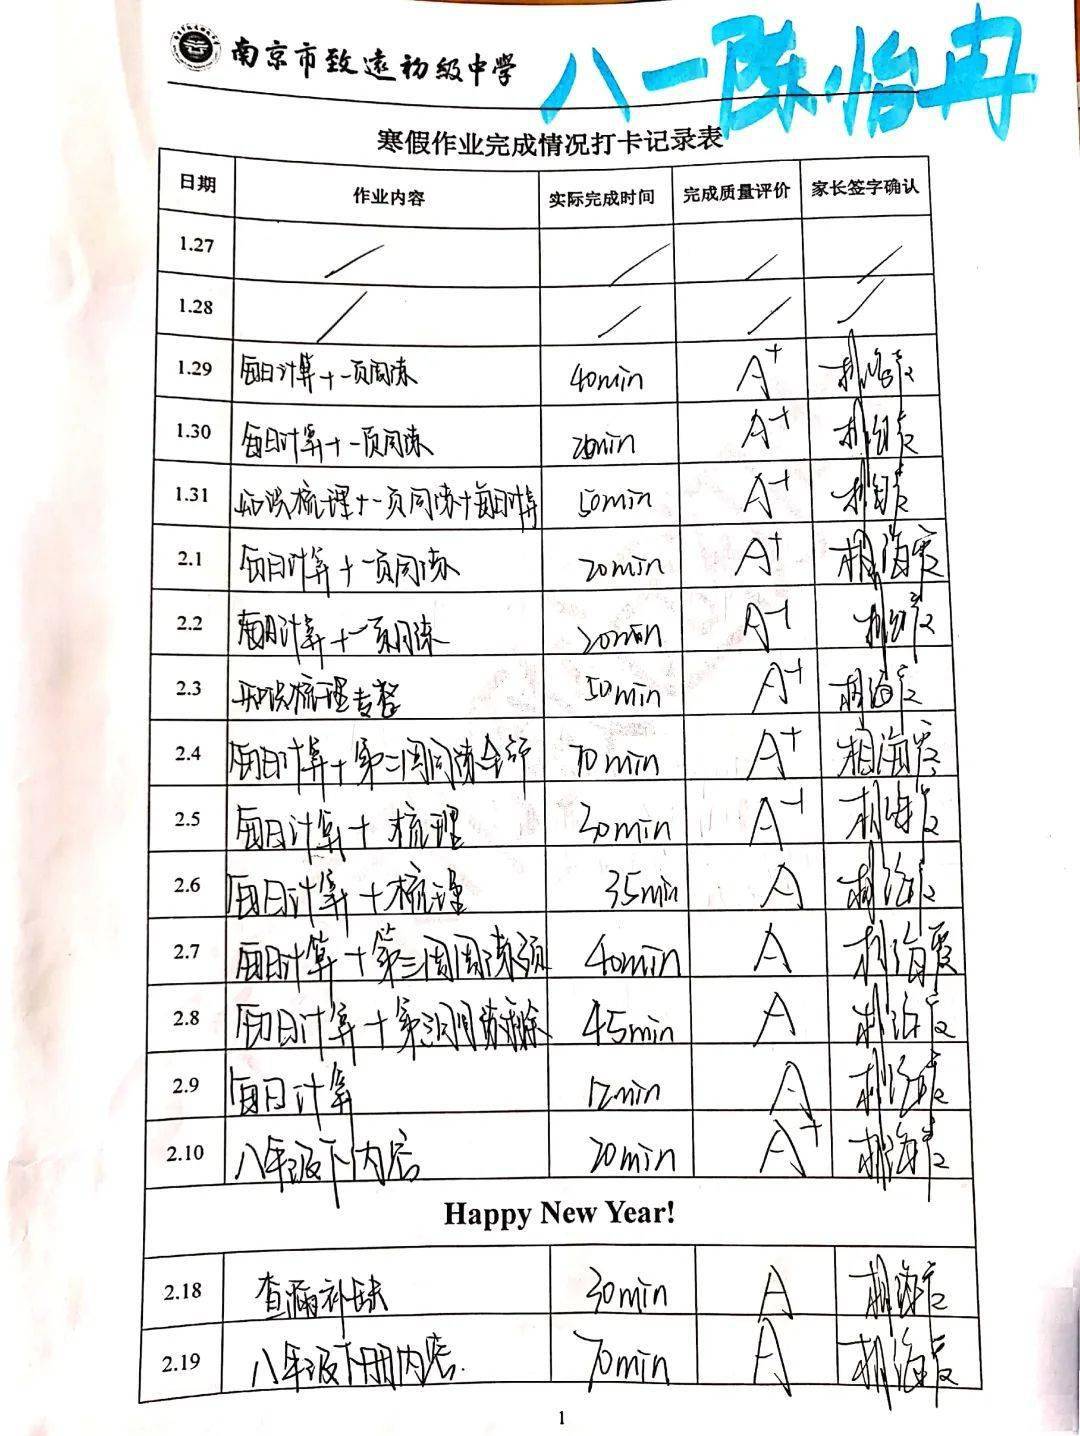 南京市致远初级中学
八一陈怡冉
寒假作业完成情况打卡记录表
日期 作业内容 实际完成时间 完成质量评价 家长签字确认
1.27 / / / /
1.28 / / / /
1.29 每日计算+一页周练 40min A+
1.30 每日计算+一页周练 20min A+
1.31 知识梳理+一页周练+每日计算 50min A+
2.1 每日计算+一页周练 20min A+ 相海霞
2.2 每日计算+一页周练 20min A+
2.3 知识梳理专整 50min A+ 相海霞
2.4 每日计算+第二周周练全部 70min A+ 相海霞
2.5 每日计算+梳理 30min A+ 相海霞
2.6 每日计算+梳理 35min A 相海霞
2.7 每日计算+第三周周练 40min A 相海霞
2.8 每日计算+第三周周练 45min A 相海霞
2.9 每日计算 12min A 相海霞
2.10 八年级下内容 20min A+ 相海霞
Happy New Year!
2.18 查漏补缺 30min A 相海霞
2.19 八年级下册内容. 70min A 相海霞
1